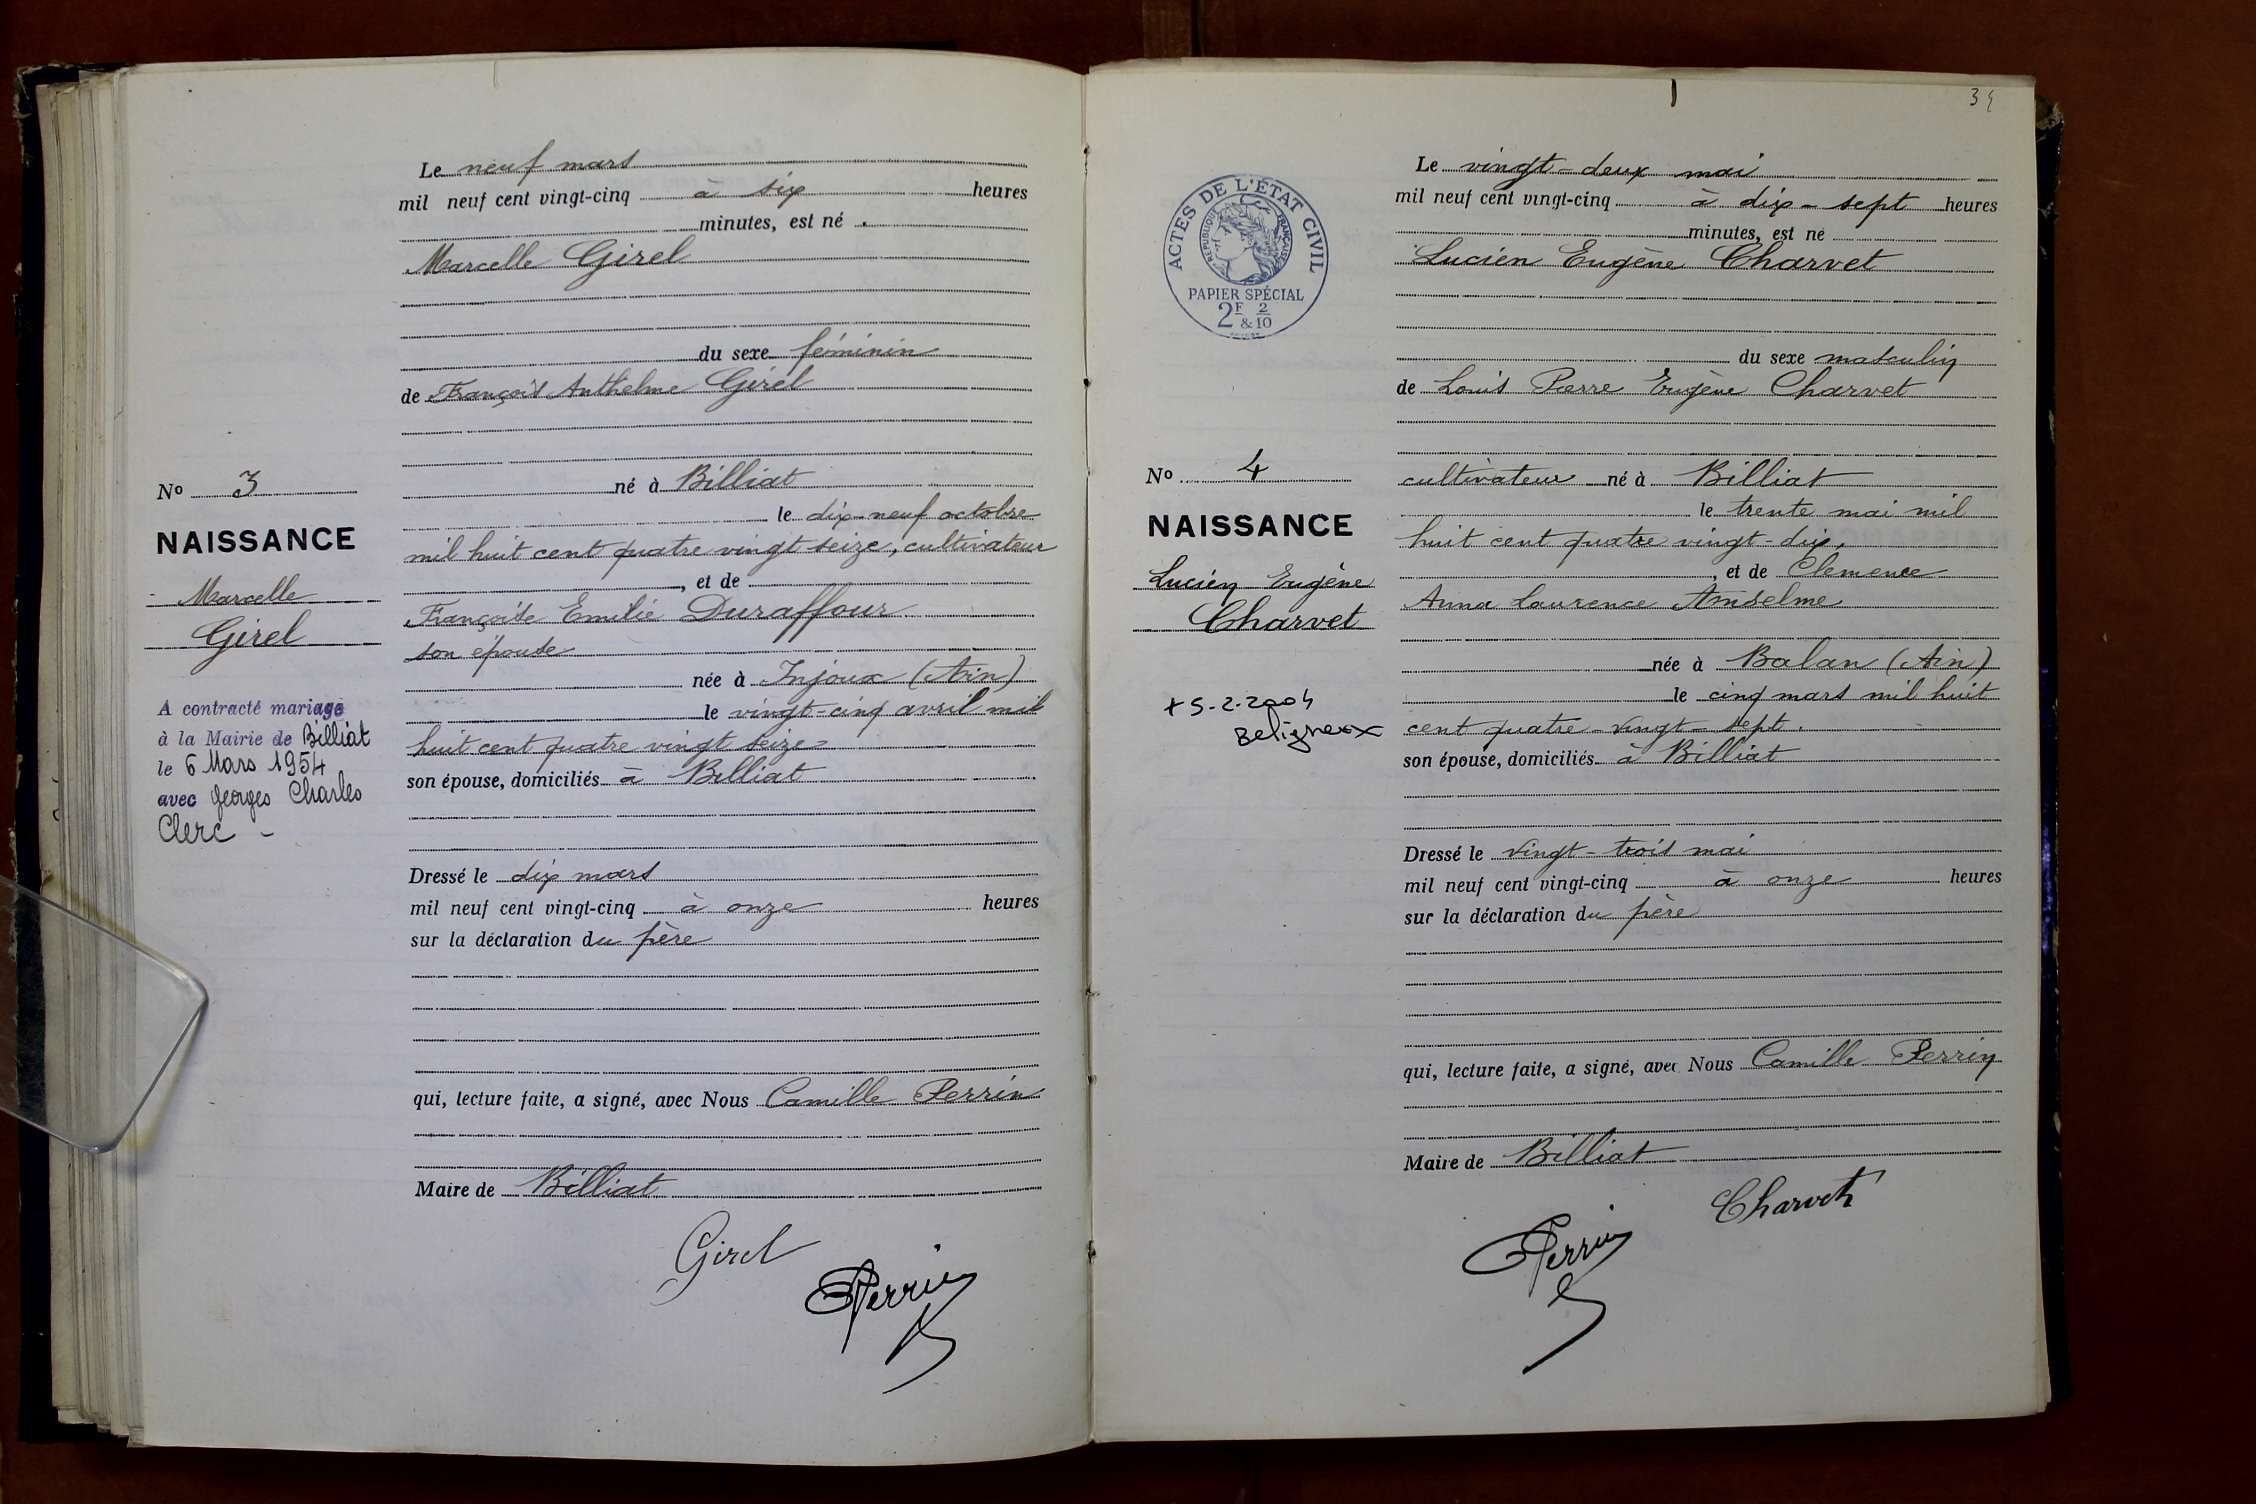 Le neuf mars
mil neuf cent vingt-cinq à six heures
minutes, est né
Marcelle Girel
du sexe féminin
de François Anthelme Girel
né à Billiat
le dix-neuf octobre
mil huit cent quatre vingt seize, cultivateur
, et de
Françoise Emilie Duraffour
son épouse
née à Injoux (Ain)
le vingt-cinq avril mil
huit cent quatre vingt seize
son épouse, domiciliés à Billiat
Dressé le dix mars
mil neuf cent vingt-cinq à onze heures
sur la déclaration du père
qui, lecture faite, a signé, avec Nous Camille Perrin
Maire de Billiat
Girel
Perrin
No 3
NAISSANCE
Marcelle
Girel
A contracté mariage
à la Mairie de Billiat
le 6 Mars 1954
avec Georges Charles
Clerc -
34
Le vingt-deux mai
mil neuf cent vingt-cinq à dix-sept heures
minutes, est né
Lucien Eugène Charvet
du sexe masculin
de Louis Pierre Eugène Charvet
cultivateur né à Billiat
le trente mai mil
huit cent quatre vingt-dix,
, et de Clemence
Anna Laurence Anselme
née à Balan (Ain)
le cinq mars mil huit
cent quatre-vingt-sept.
son épouse, domiciliés à Billiat
Dressé le vingt-trois mai
mil neuf cent vingt-cinq à onze heures
sur la déclaration du père
qui, lecture faite, a signé, avec Nous Camille Perrin
Maire de Billiat
Charvet
Perrin
ACTES DE L'ÉTAT CIVIL
RÉPUBLIQUE FRANÇAISE
PAPIER SPÉCIAL
2F & 2/10
No 4
NAISSANCE
Lucien Eugène
Charvet
+ 5-2-2004
Beligneux